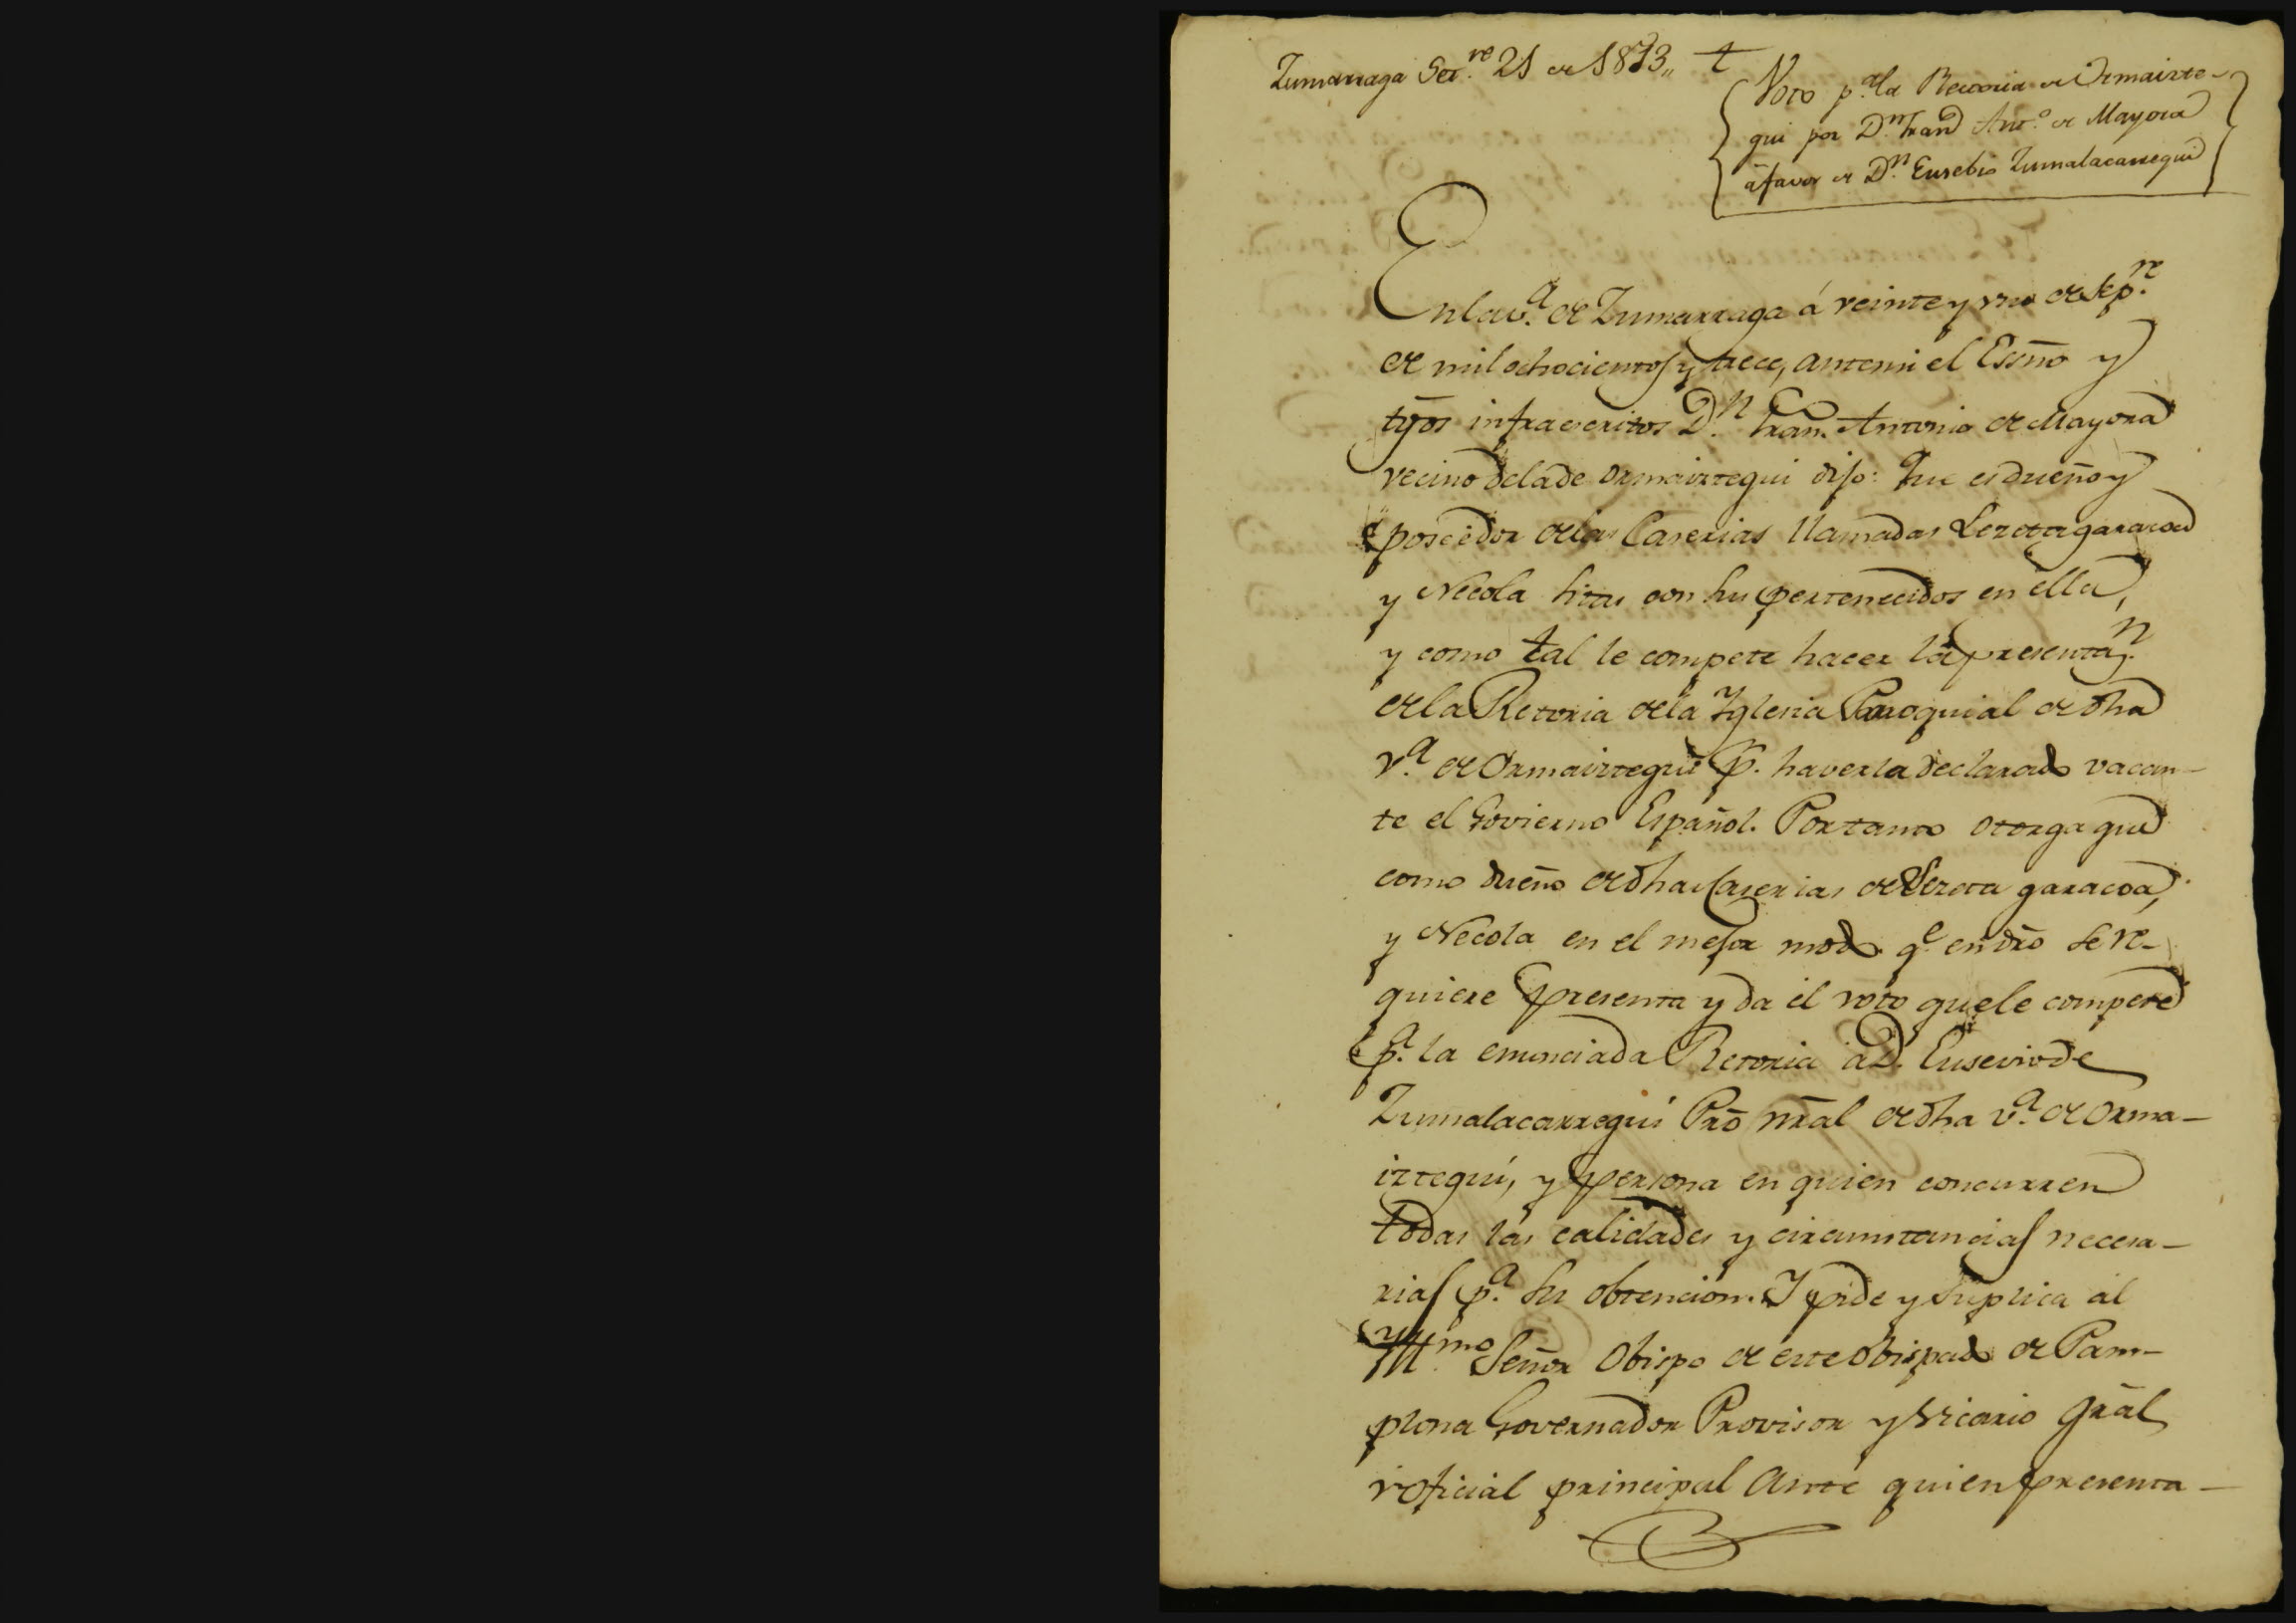 Zumarraga Set.re 21 de 1813,, t
Voto p.a la Rectoria de Ormaizte-
gui por D.n Fran.co Ant.o de Mayora
á favor de D.n Eusebio Zumalacarregui
En la v.a de Zumarraga á veinte y uno de Sep.re
de mil ochocientos y trece, ante mi el Essno y
tgos infraescritos D.n Fran.co Antonio de Mayora
vecino dela de Ormaiztegui dijo: Que es dueño y
poseedor delas Caserias llamadas Lezeta garacoa
y Necola sitas con sus pertenecidos en ella,
y como tal le compete hacer la presentaz.n
de la Retoria dela Yglesia Parroquial de dha
v.a de Ormaiztegui p.r haverla declarado vacan-
te el Govierno Español. Por tanto otorga que
como dueño de dhas Caserias de Lezeta garacoa,
y Necola en el mejor modo q.e en dro se re-
quiere presenta y da el voto que le compete
p.a la enunciada Retoria á D. Eusevio de
Zumalacarregui Pro nral de dha v.a de Orma-
iztegui, y persona en quien concurren
todas las calidades y circunstancias necesa-
rias p.a su obtencion. Y pide y suplica al
Yll.mo Señor Obispo de este Obispado de Pam-
plona Governador Provisor y Vicario Gral
v oficial principal ante quien presenta-